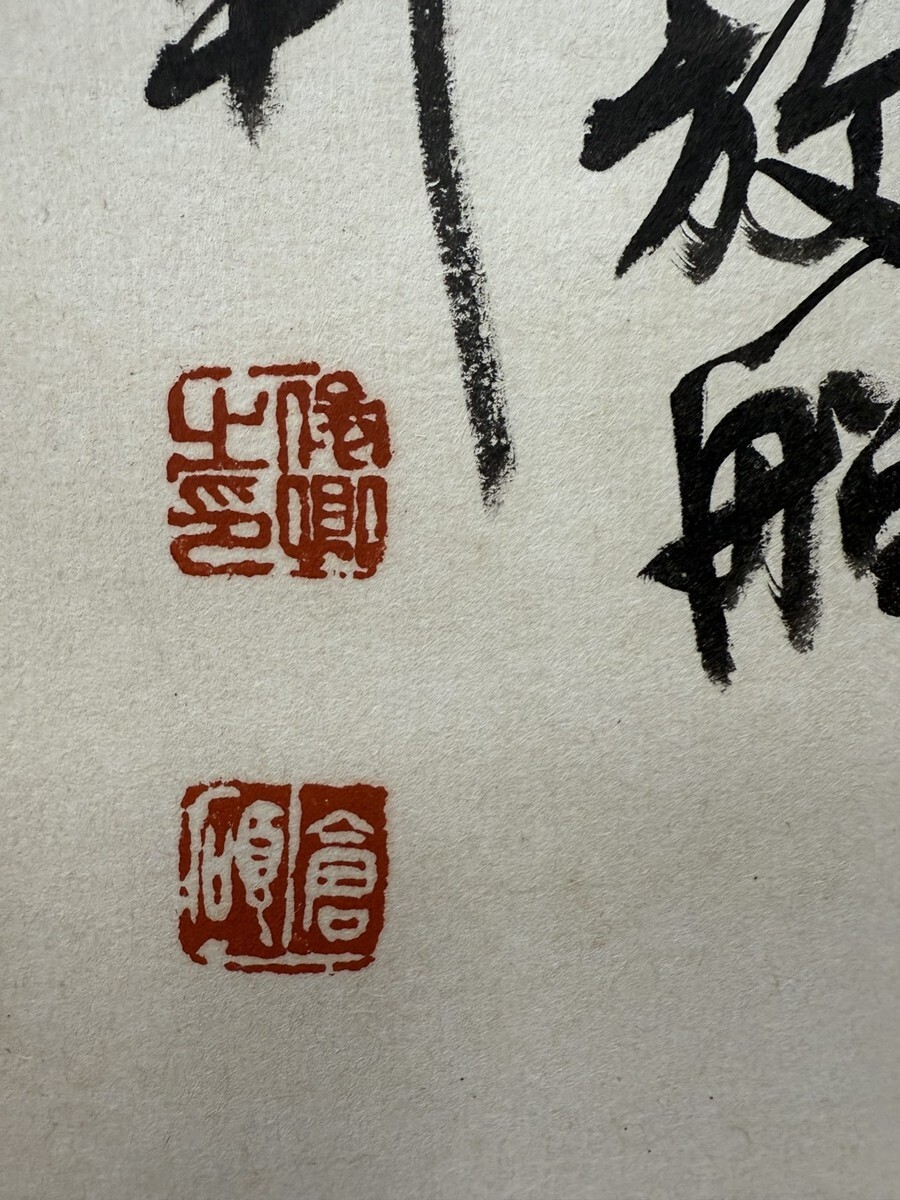 放船
俊卿之印
倉碩